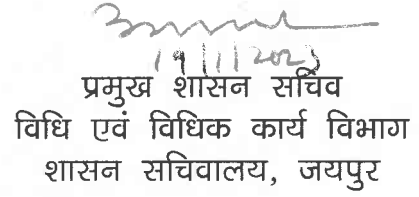 प्रमुख शासन सचिव
विधि एवं विधिक कार्य विभाग
शासन सचिवालय, जयपुर